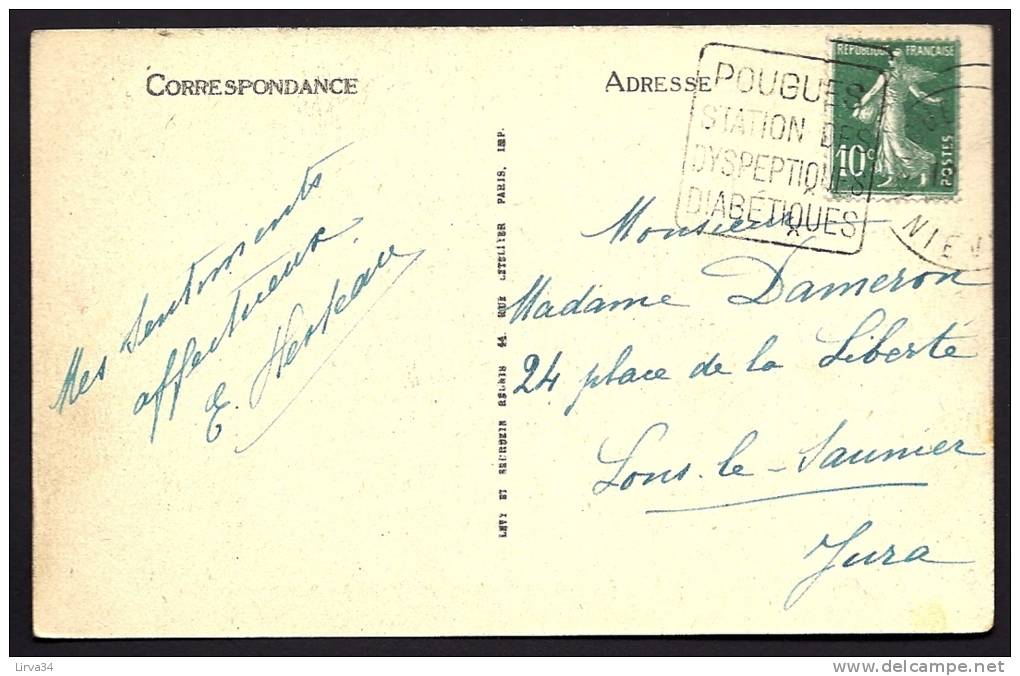 CORRESPONDANCE
ADRESSE
POUGUES
STATION DES
DYSPEPTIQUES
DIABÉTIQUES
REPUBLIQUE FRANÇAISE
10c
POSTES
NIEV
Mes sentiments
affectueux
E.
LEVY ET NEURDEIN REUNIS 44, RUE LETELLIER PARIS, IMP.
Monsieur
Madame Dameron
24 place de la Liberté
Lons-le-Saunier
Jura
Lirva34
www.delcampe.net